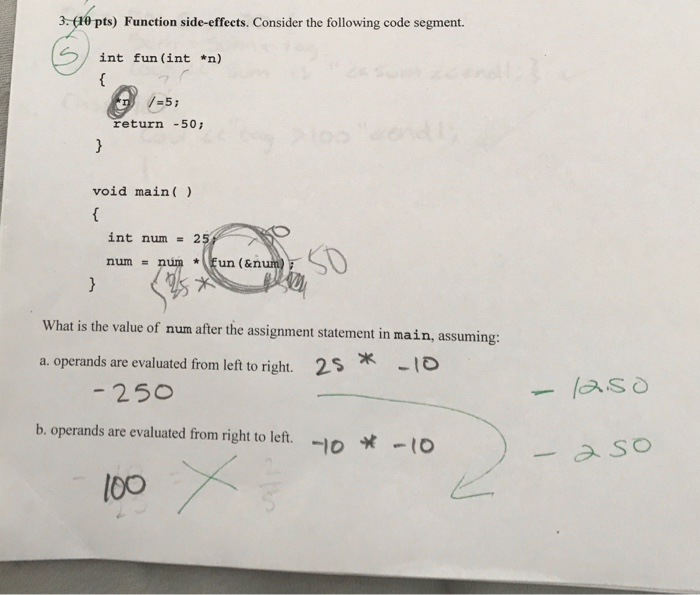 3. (10 pts) Function side-effects. Consider the following code segment.
5
int fun(int *n)
{
*n /=5;
return -50;
}
void main( )
{
int num = 25;
num = num * fun(&num); 50
25 *
}
What is the value of num after the assignment statement in main, assuming:
a. operands are evaluated from left to right. 25 * -10
-250
- 1250
b. operands are evaluated from right to left. -10 * -10
- 250
100